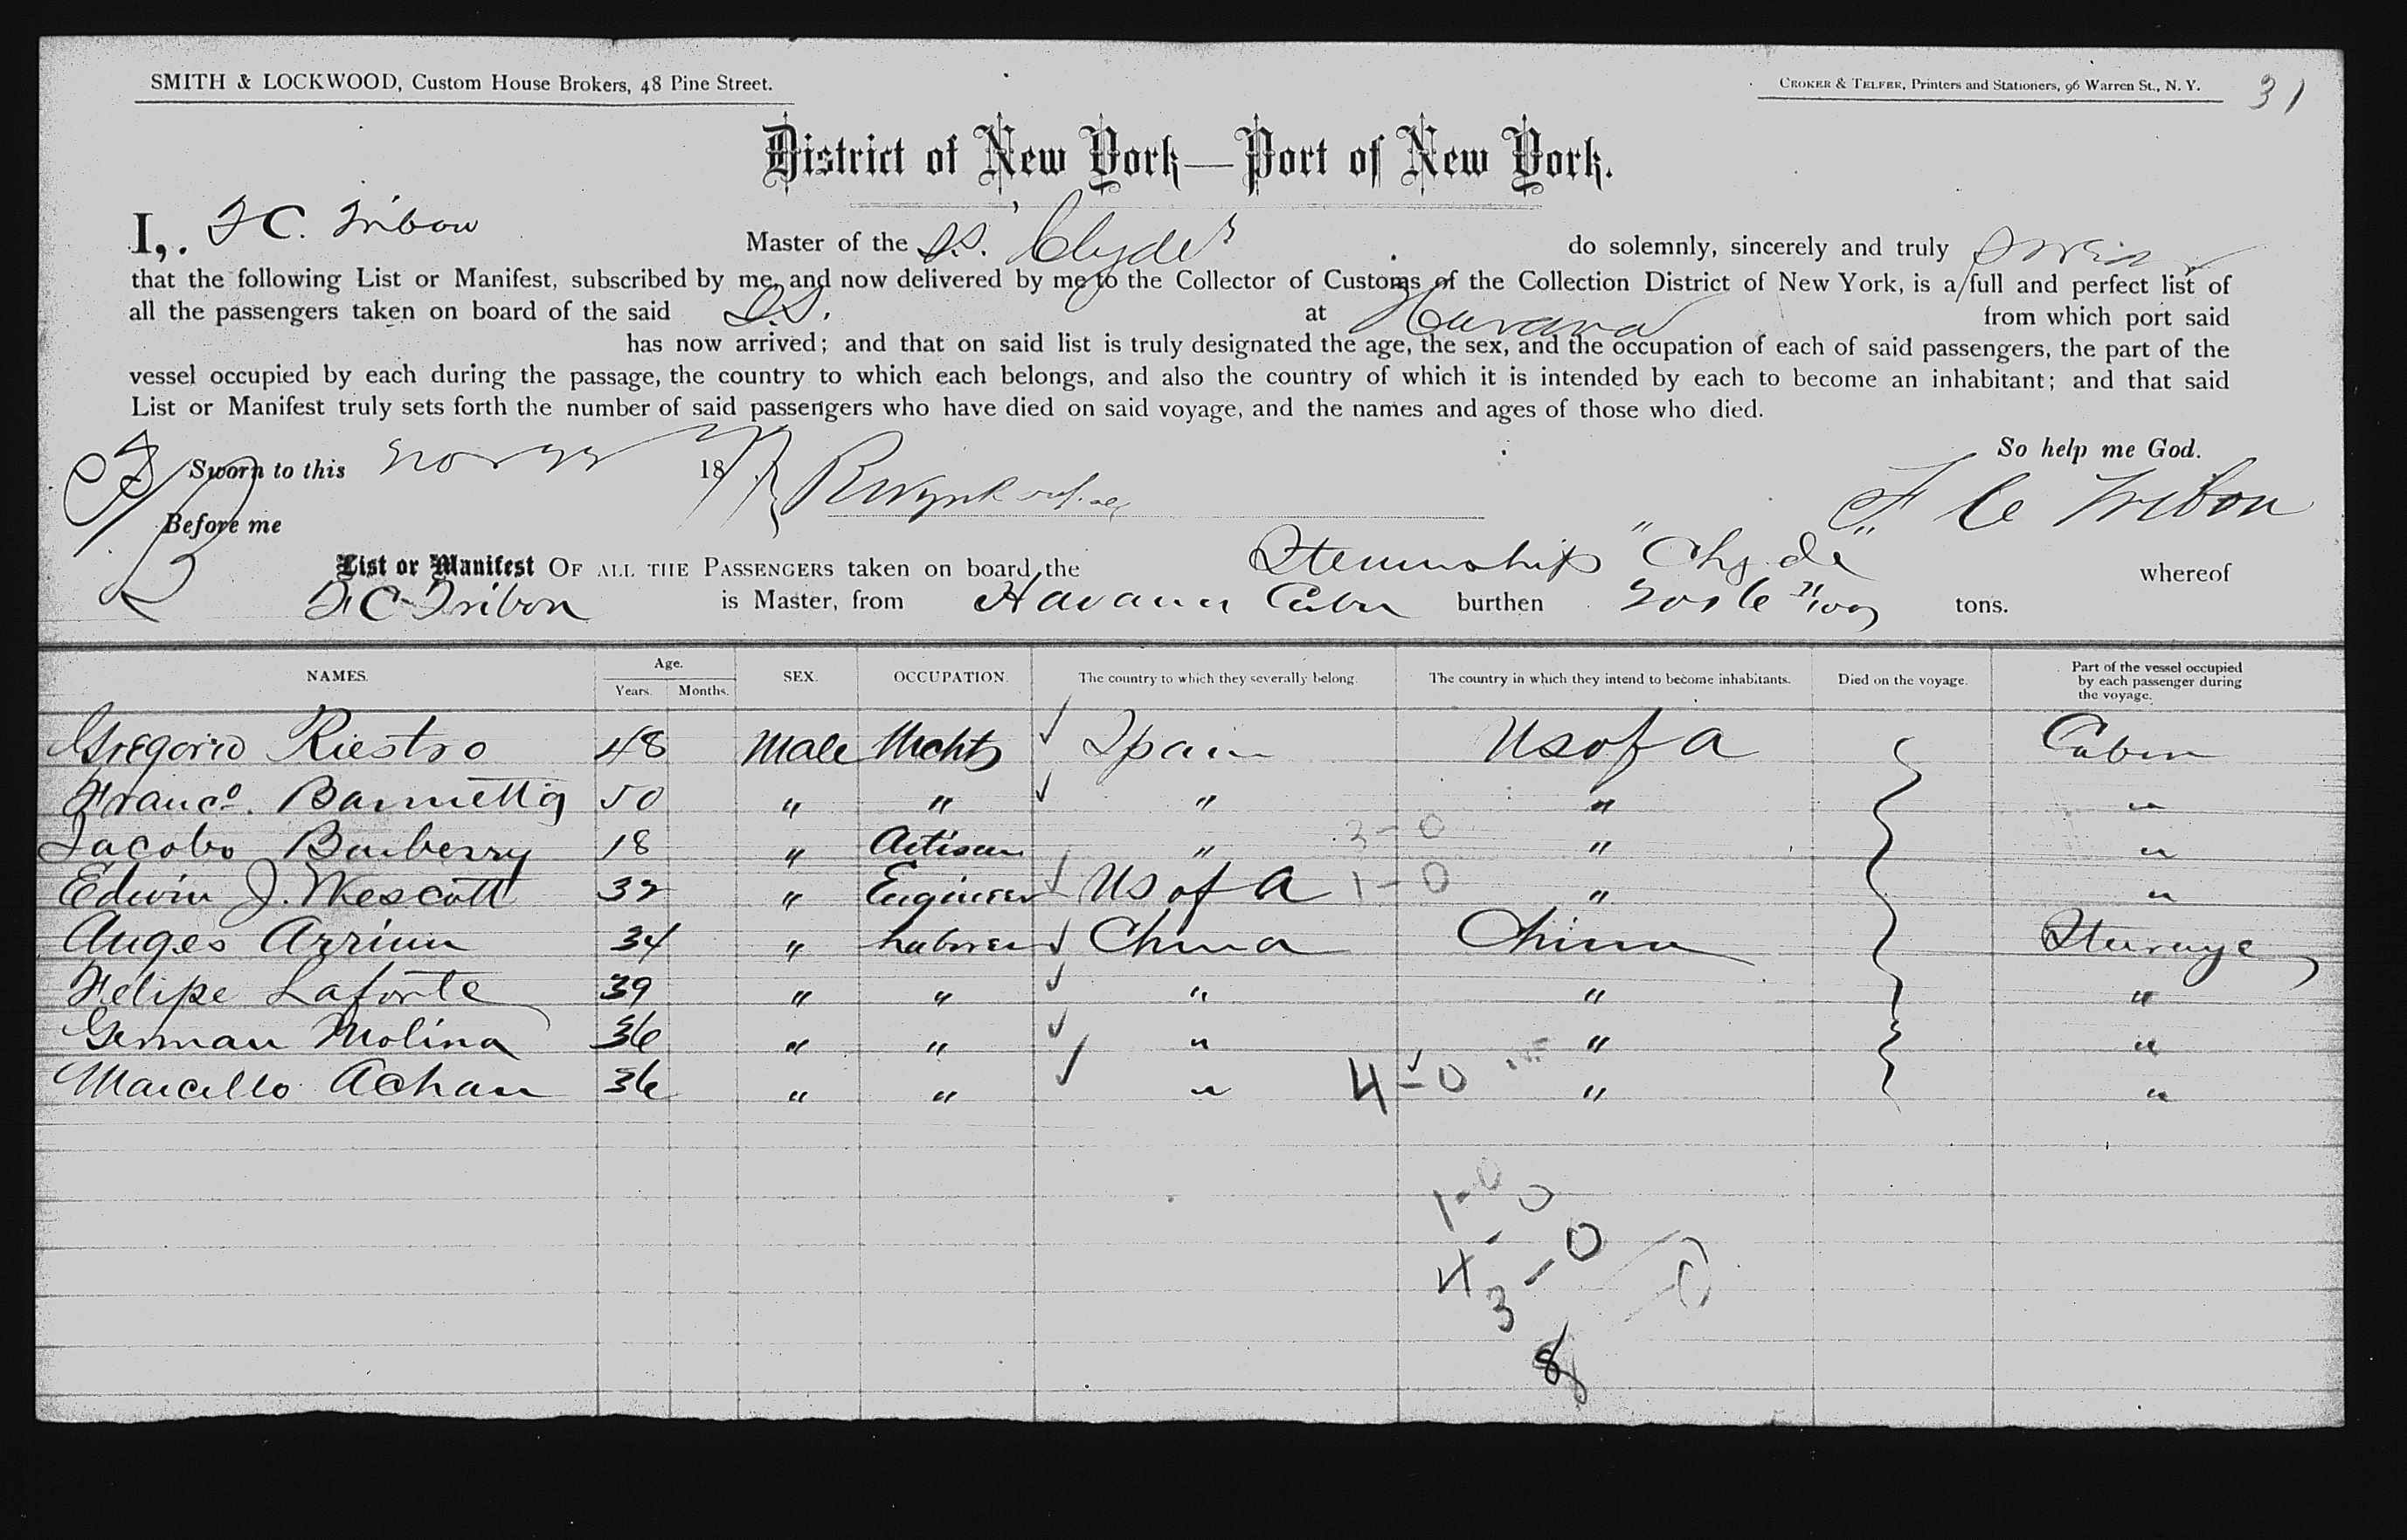 SMITH & LOCKWOOD, Custom House Brokers, 48 Pine Street.
CROKER & TELFER, Printers and Stationers, 96 Warren St., N. Y.
31
District of New York—Port of New York.
I, F C. Tribou Master of the S.S. Clyde do solemnly, sincerely and truly swear
that the following List or Manifest, subscribed by me, and now delivered by me to the Collector of Customs of the Collection District of New York, is a full and perfect list of
all the passengers taken on board of the said S.S. at Havana from which port said
has now arrived; and that on said list is truly designated the age, the sex, and the occupation of each of said passengers, the part of the
vessel occupied by each during the passage, the country to which each belongs, and also the country of which it is intended by each to become an inhabitant; and that said
List or Manifest truly sets forth the number of said passengers who have died on said voyage, and the names and ages of those who died.
So help me God.
Sworn to this Nov 18
F C Tribou
Before me
List or Manifest OF ALL THE PASSENGERS taken on board the Steamship "Clyde" whereof
F C Tribou is Master, from Havana Cuba burthen tons.
NAMES. Age. Years. Months. SEX. OCCUPATION. The country to which they severally belong. The country in which they intend to become inhabitants. Died on the voyage. Part of the vessel occupied by each passenger during the voyage.
Gregorio Riestro 48 Male Mcht Spain US of A Cabin
Franco. 50 " " " " "
Jacobo Barberry 18 " Artisan " 3-0 " "
Edwin J. Wescott 32 " Engineer US of A 1-0 " "
Arrium 34 " Laborer China China Steerage
Felipe Laforte 39 " " " " "
German Molina 36 " " " " "
Marcello Achan 36 " " " 4-0 " "
1-0
4-0
3-0
8